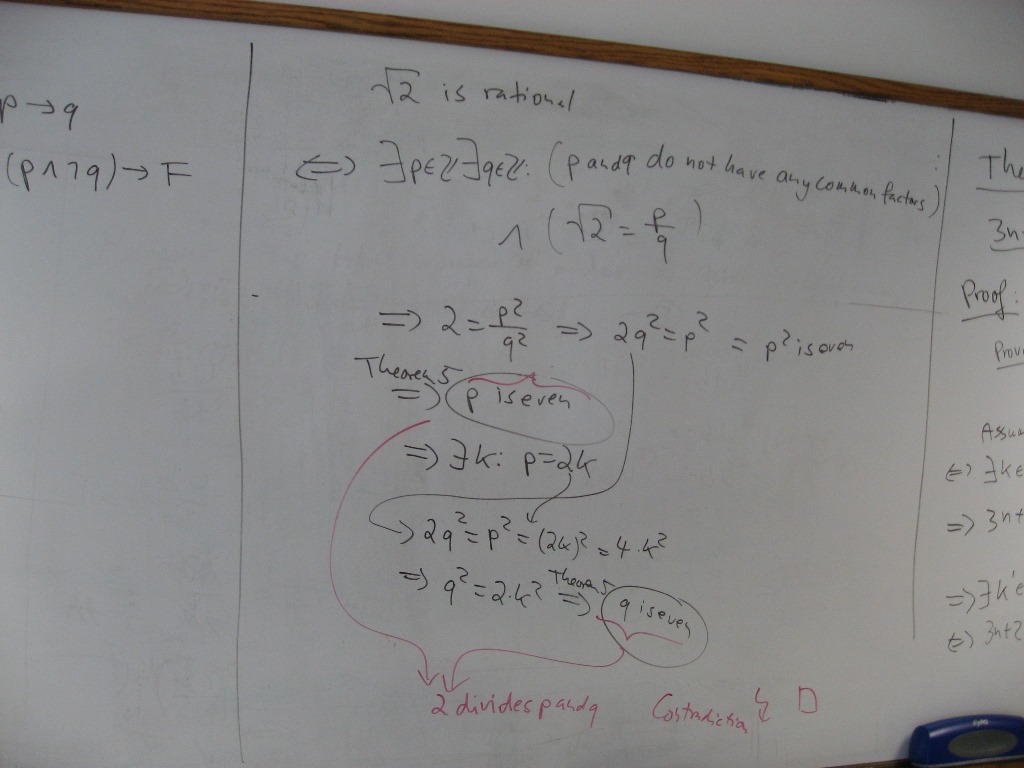 p → q
(p ∧ ¬q) → F
√2 is rational
⇔ ∃p∈ℤ ∃q∈ℤ: (p and q do not have any common factors)
∧ (√2 = p/q)
⇒ 2 = p²/q² ⇒ 2q² = p² = p² is even
Theorem 5
⇒ p is even
⇒ ∃k: p = 2k
→ 2q² = p² = (2k)² = 4·k²
⇒ q² = 2·k² Theorem 5 ⇒ q is even
2 divides p and q Contradiction ↯ □
The
3n+
Proof:
Prove
Assum
⇔ ∃k∈
⇒ 3n+
⇒ ∃k'∈
⇔ 3n+2